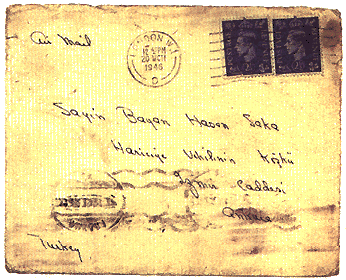 Air Mail
LONDON W.1
12 15 PM
20 OCT
1946
Sayin Bayan Hasan Saka
Hariciye Vekilinin Köşkü
İzmir Caddesi
Ankara
Turkey